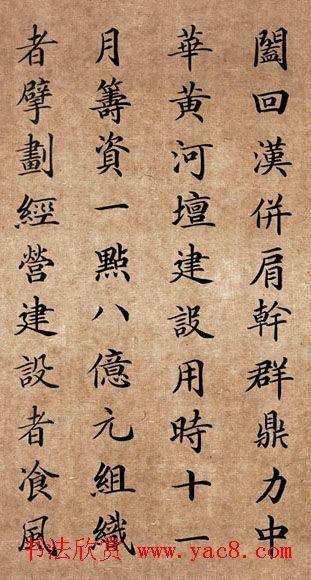 闔回漢併肩幹群鼎力中
華黄河壇建設用時十一
月籌資一點八億元組織
者擘劃經營建設者飡風
书法欣赏 www.yac8.com